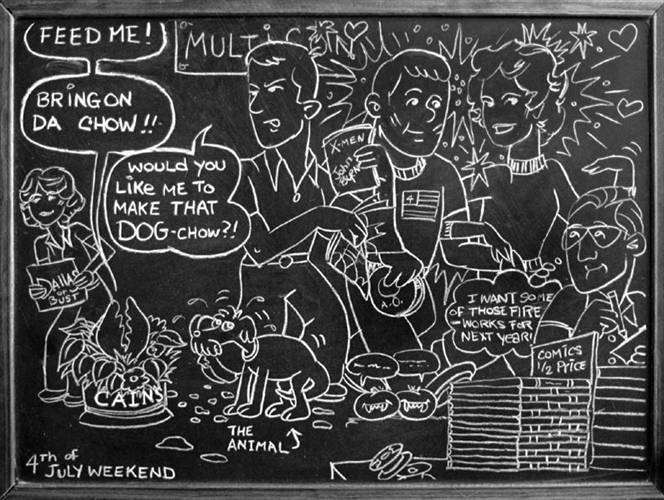 FEED ME!
BRING ON
DA CHOW!!
MULTICON
WOULD YOU
LIKE ME TO
MAKE THAT
DOG-CHOW?!
X-MEN
JOHN
BYRNE
4
A.O.
DALLAS
OR
BUST
I WANT SOME
OF THOSE FIRE
-WORKS FOR
NEXT YEAR!
COMICS
1/2 PRICE
CAIN'S
THE
ANIMAL
4TH OF
JULY WEEKEND